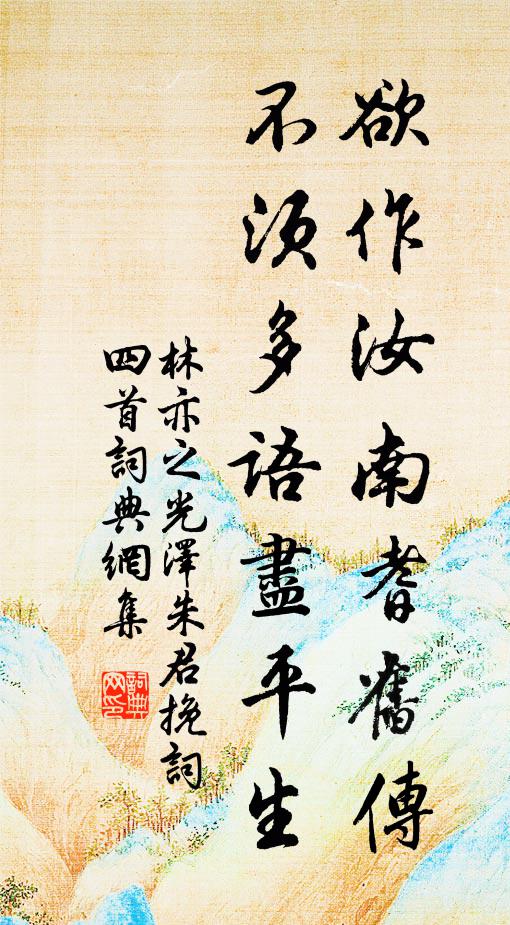 欲作汝南耆舊傳
不須多語盡平生
林亦之光澤朱君挽詞
四首詞典網集
詞典網印